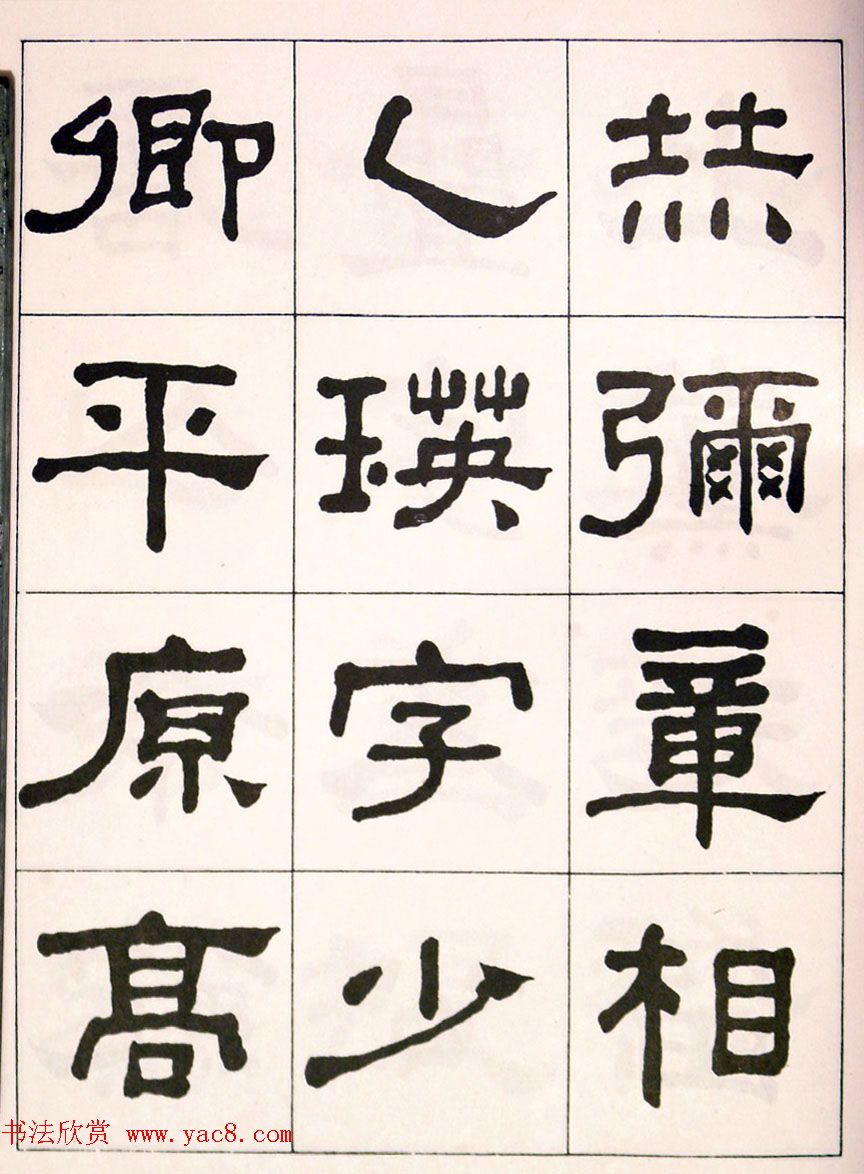 赫彌章相
乙瑛字少
卿平原高
书法欣赏 www.yac8.com